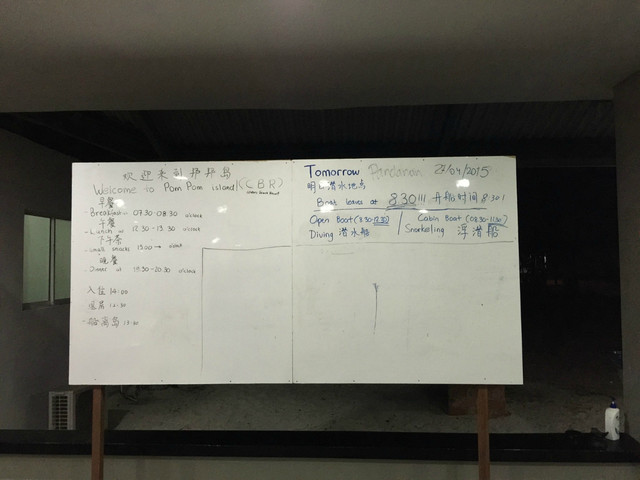 欢迎来到邦邦岛
Welcome to Pom Pom island (CBR)
早餐
- Breakfast 07:30-08:30 o'clock
午餐
- Lunch at 12:30-13:30 o'clock
下午茶
- small snacks 15:00 → o'clock
晚餐
- Dinner at 19:30-20:30 o'clock
入住 14:00
退房
船离岛
Tomorrow Pandanan 22/04/2015
明日潜水地点
Boat leaves at 8:30!!! 开船时间 8:30!
Open Boat (8:30-12:30)
Diving 潜水船
Cabin Boat (08:30-11:30)
Snorkeling 浮潜船